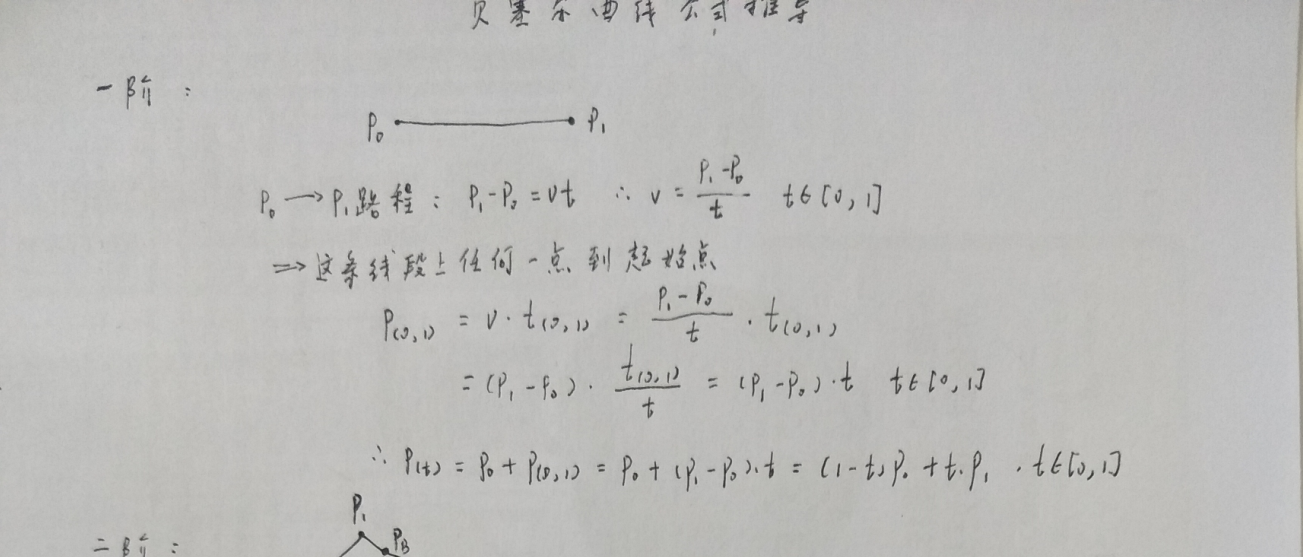 贝塞尔曲线公式推导
一阶：
P₀ P₁
P₀ → P₁路程： P₁-P₀ = vt ∴ v = (P₁-P₀)/t t∈[0,1]
⇒ 这条线段上任何一点到起始点
P(0,1) = v·t(0,1) = (P₁-P₀)/t · t(0,1)
= (P₁-P₀)· t(0,1)/t = (P₁-P₀)·t t∈[0,1]
∴ P(t) = P₀ + P(0,1) = P₀ + (P₁-P₀)·t = (1-t)P₀ + t·P₁ . t∈[0,1]
P₁
P_B
二阶：